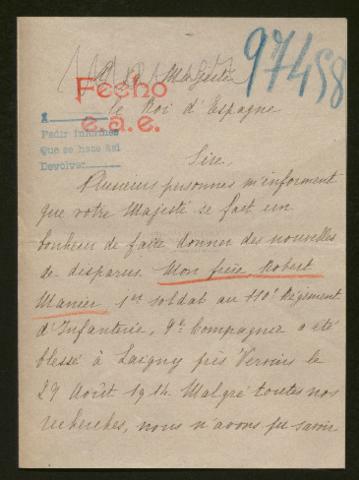 97458
A Sa Majesté
Fecho
le Roi d'Espagne
e.a.e.
A
Pedir informes
Que se hace así
Devolver
Sire,
Plusieurs personnes m'informent
que votre Majesté se fait un
bonheur de faire donner des nouvelles
de disparus. Mon frère, Robert
Manier, 1er soldat au 110e Régiment
d'Infanterie, 9e Compagnie a été
blessé à Laigny près Vervins le
29 Août 1914. Malgré toutes nos
recherches, nous n'avons pu savoir